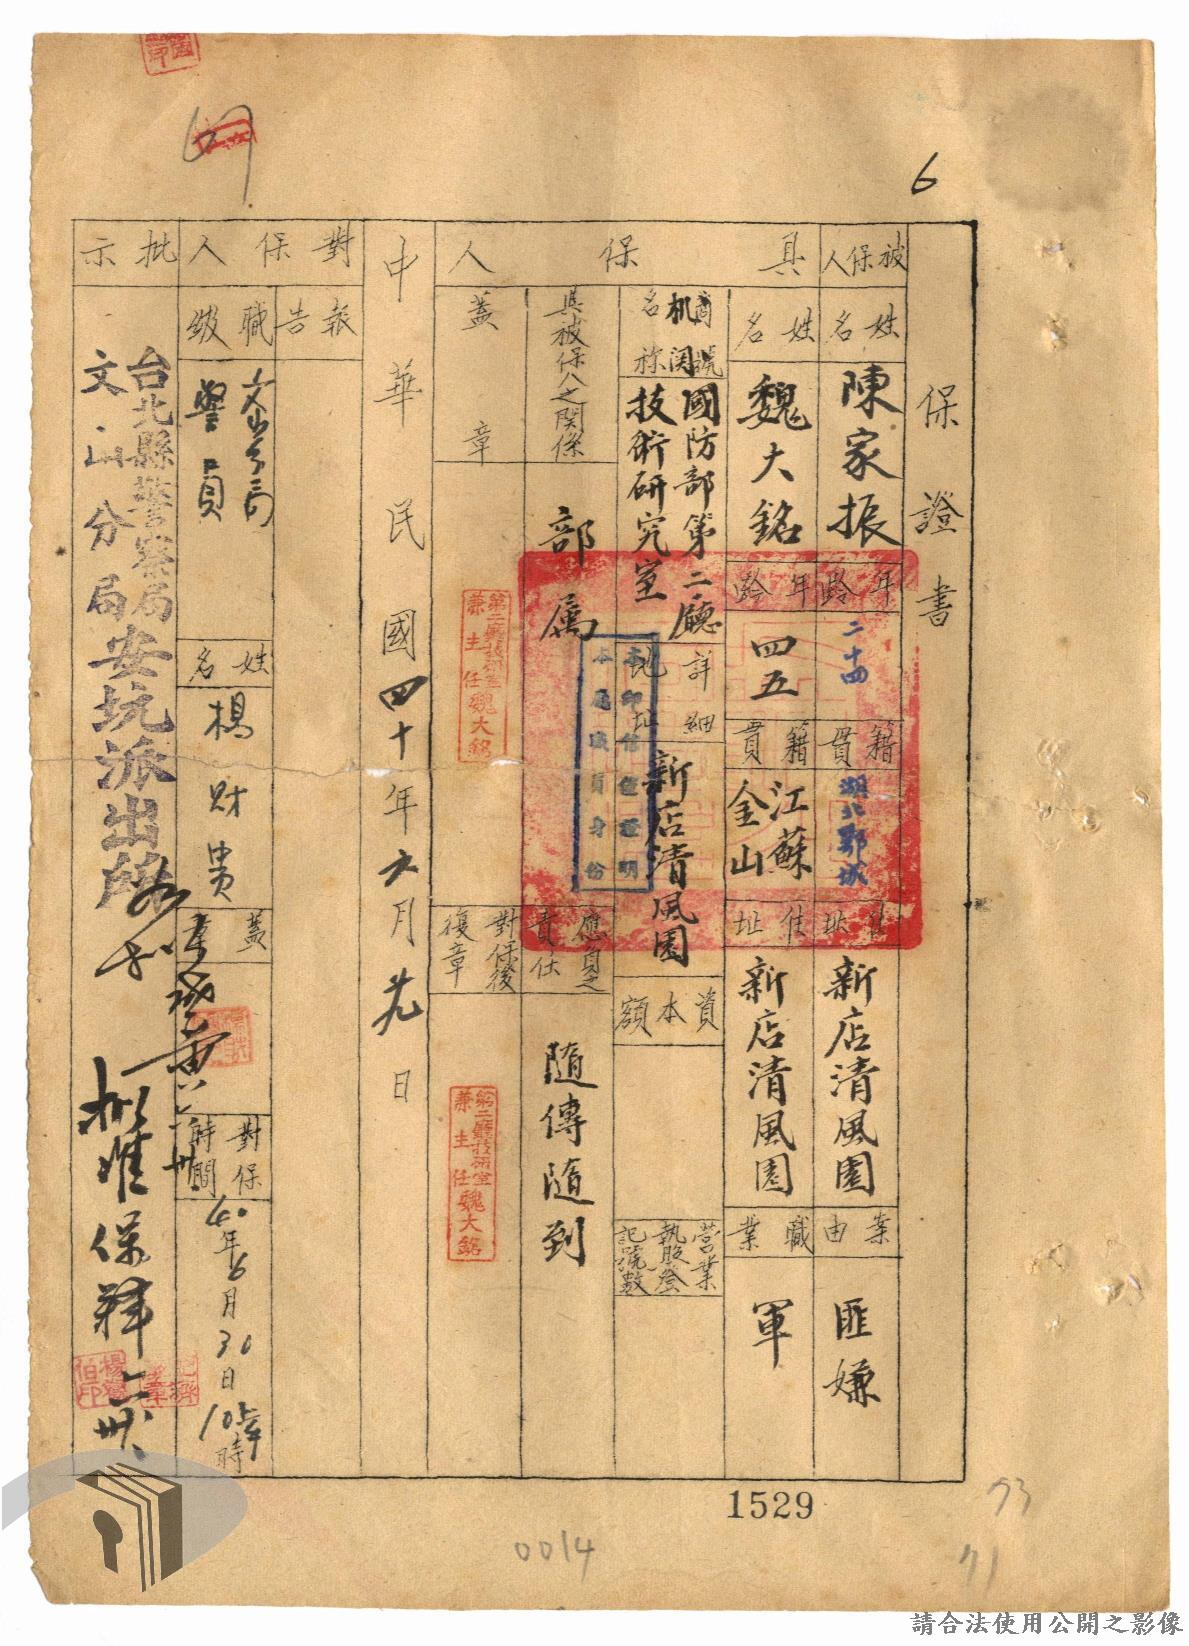 6
保證書
被保人
姓名
陳家振
年齡
二十四
籍貫
湖北鄂城
住址
新店清風園
案由
匪嫌
具保人
姓名
魏大銘
年齡
四五
籍貫
江蘇
金山
住址
新店清風園
職業
軍
商號
机関
名称
國防部第二廳
技術研究室
詳細
地址
新店清風園
資本額
營業
執照登
記號數
與被保人之関係
部属
應負之
責任
隨傳隨到
本印信僅證明
本廳職員身份
蓋章
第二廳技術研究室
兼主任魏大銘
對保後
復章
第二廳技研室
兼主任魏大銘
中華民國四十年六月廿九日
對保人
報告
職級
文山分局
警員
姓名
楊財貴
蓋章
對保
時間
40年6月30日10時
批示
台北縣警察局
文山分局
安坑派出所
擬准保釋
1529
0014
73
71
請合法使用公開之影像